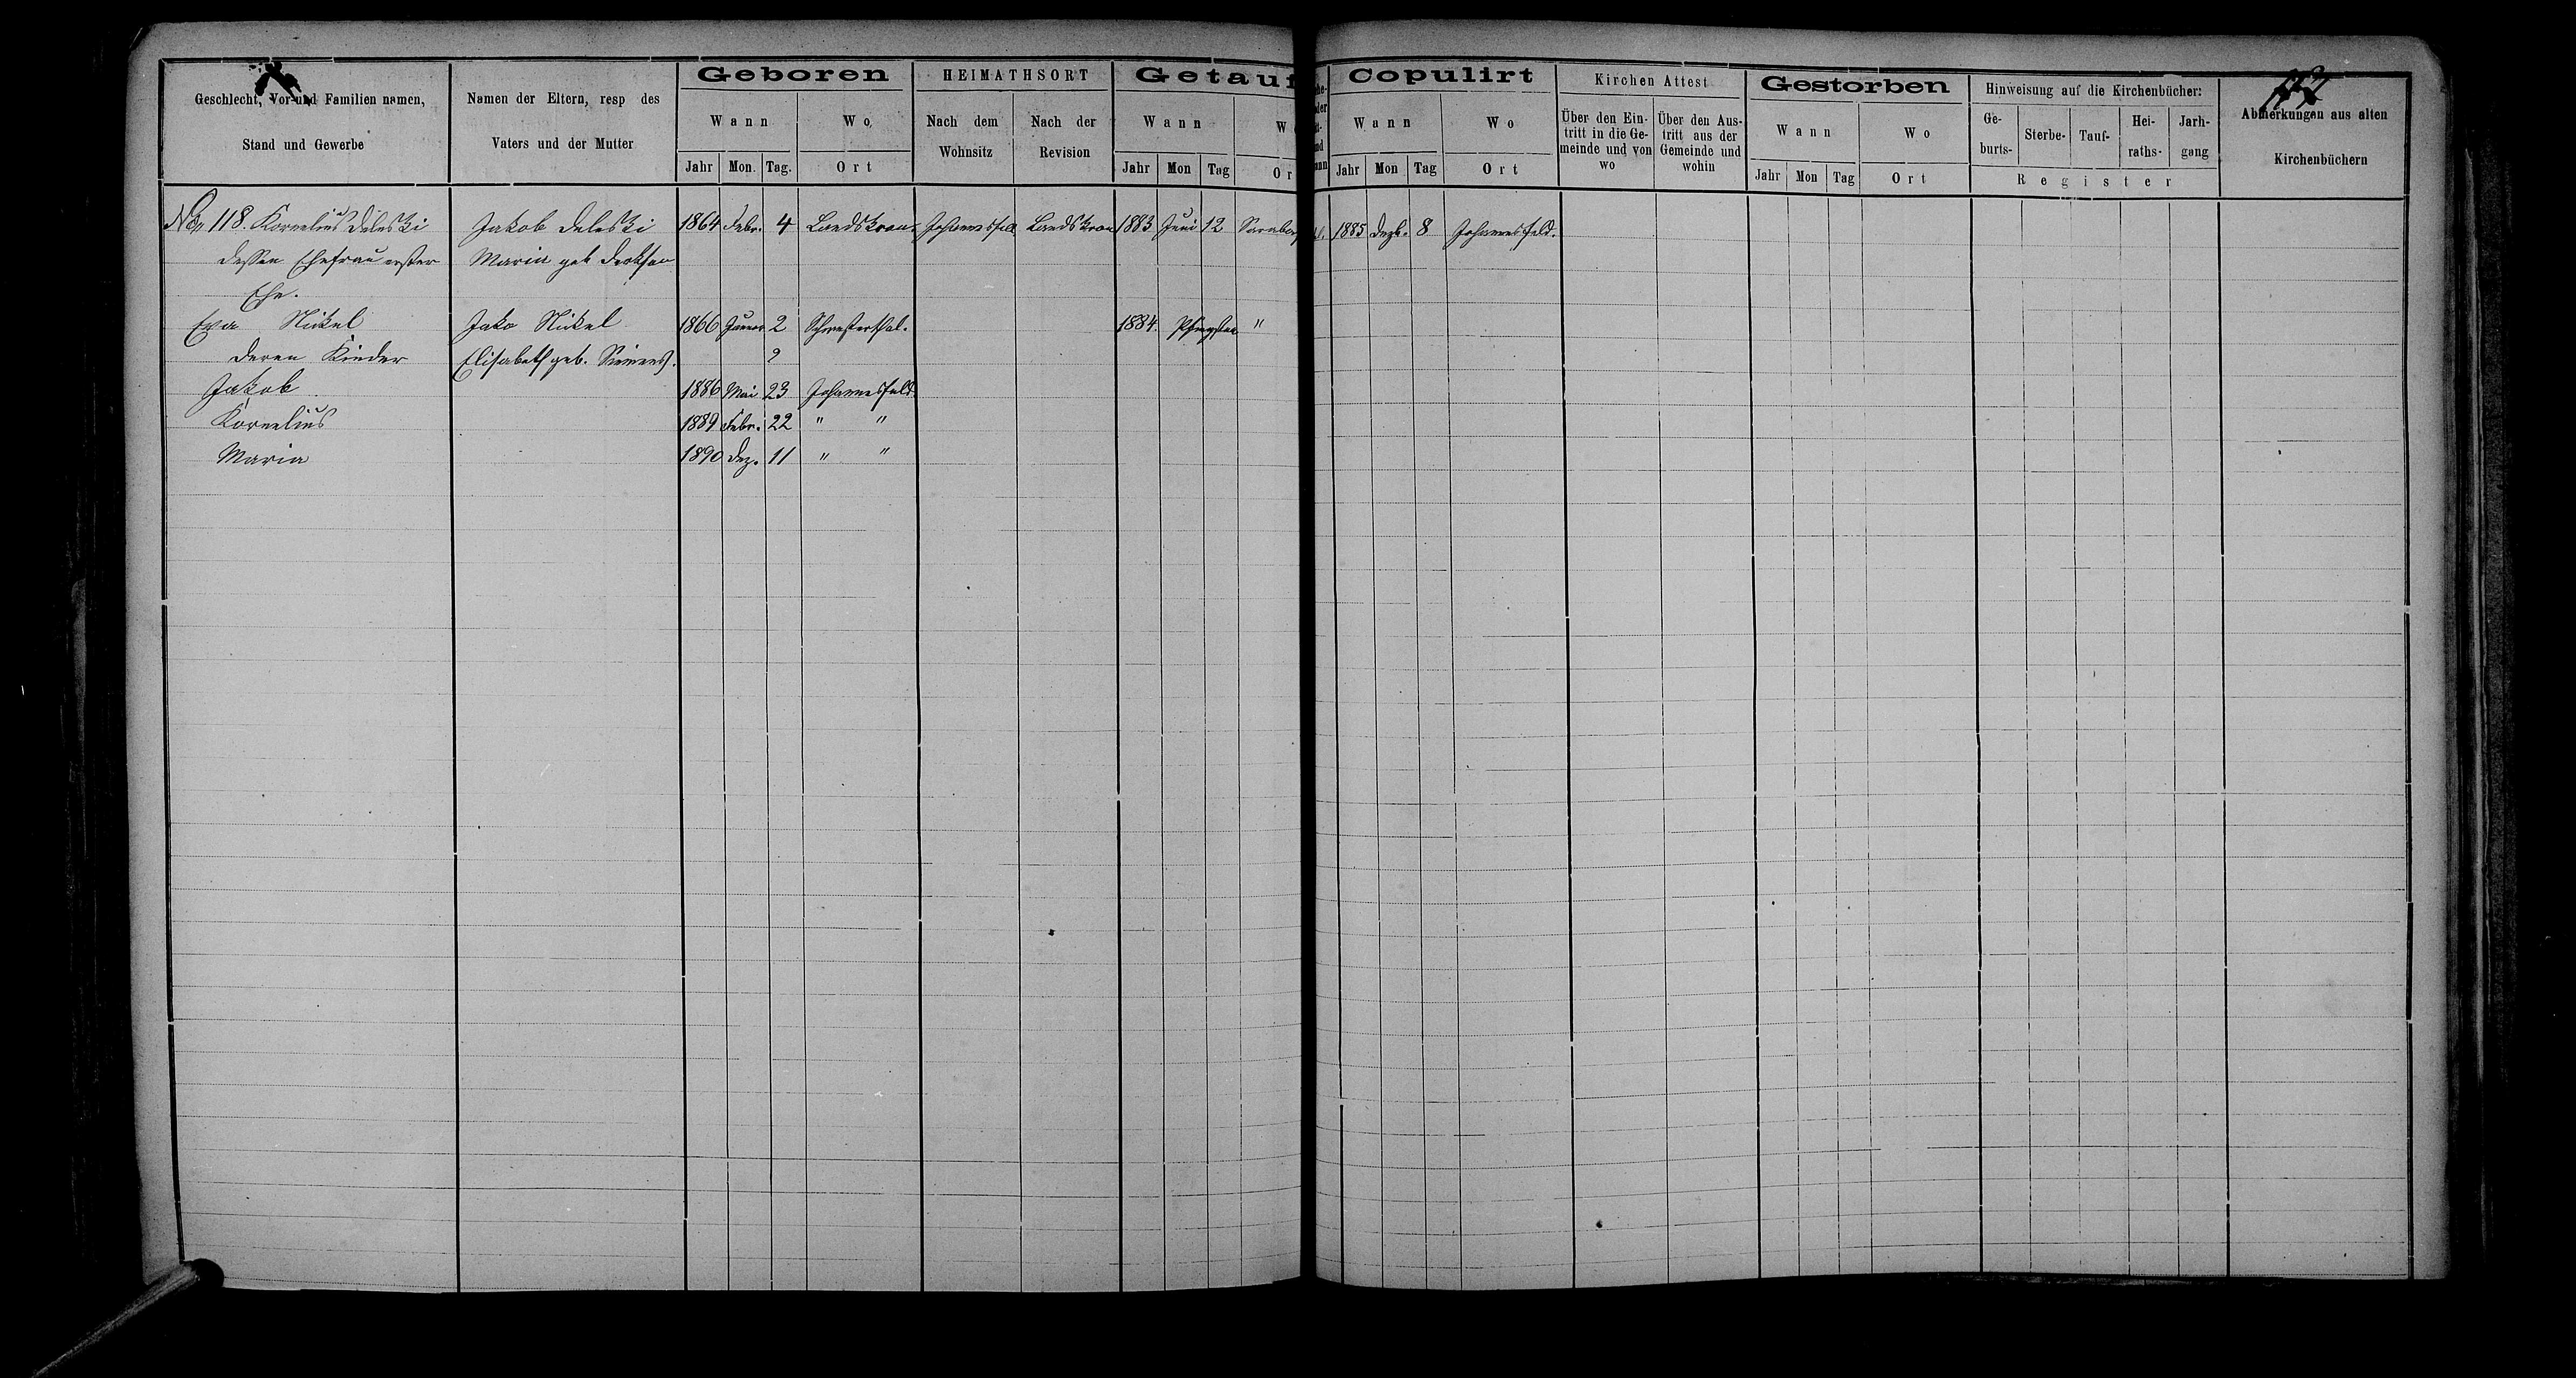 Geschlecht, Vor-und Familien namen,
Stand und Gewerbe
Namen der Eltern, resp des
Vaters und der Mutter
Geboren
Wann
Wo
Jahr Mon. Tag. Ort
HEIMATHSORT
Nach dem Wohnsitz
Nach der Revision
Getauf
Wann
Jahr Mon Tag Or
Copulirt
Wann
Wo
Jahr Mon Tag Ort
Kirchen Attest
Über den Ein-
tritt in die Ge-
meinde und von
wo
Über den Aus-
tritt aus der
Gemeinde und
wohin
Gestorben
Wann
Wo
Jahr Mon Tag Ort
Hinweisung auf die Kirchenbücher:
Ge-
burts-
Sterbe-
Tauf-
Hei-
raths-
Jarh-
gang
Register
Abmerkungen aus alten
Kirchenbüchern
No, 118. Kornelius Deleski Jakob Deleski 1864 Febr. 4 Landskrone Johannsfeld Landskron 1883 Juni 12 1885 Dezb. 8 Johannesfeld.
dessen Ehefrau erster Maria geb Derksen
Ehe.
Eva Nickel Jako Nickel 1866 Januar 2 Schwesterthal. 1884. Pfingsten "
deren Kinder Elisabeth geb. Siemens.
Jakob 1886 Mai 23 Johannesfeld
Kornelius 1889 Febr. 22 " "
Maria 1890 Dez. 11 " "